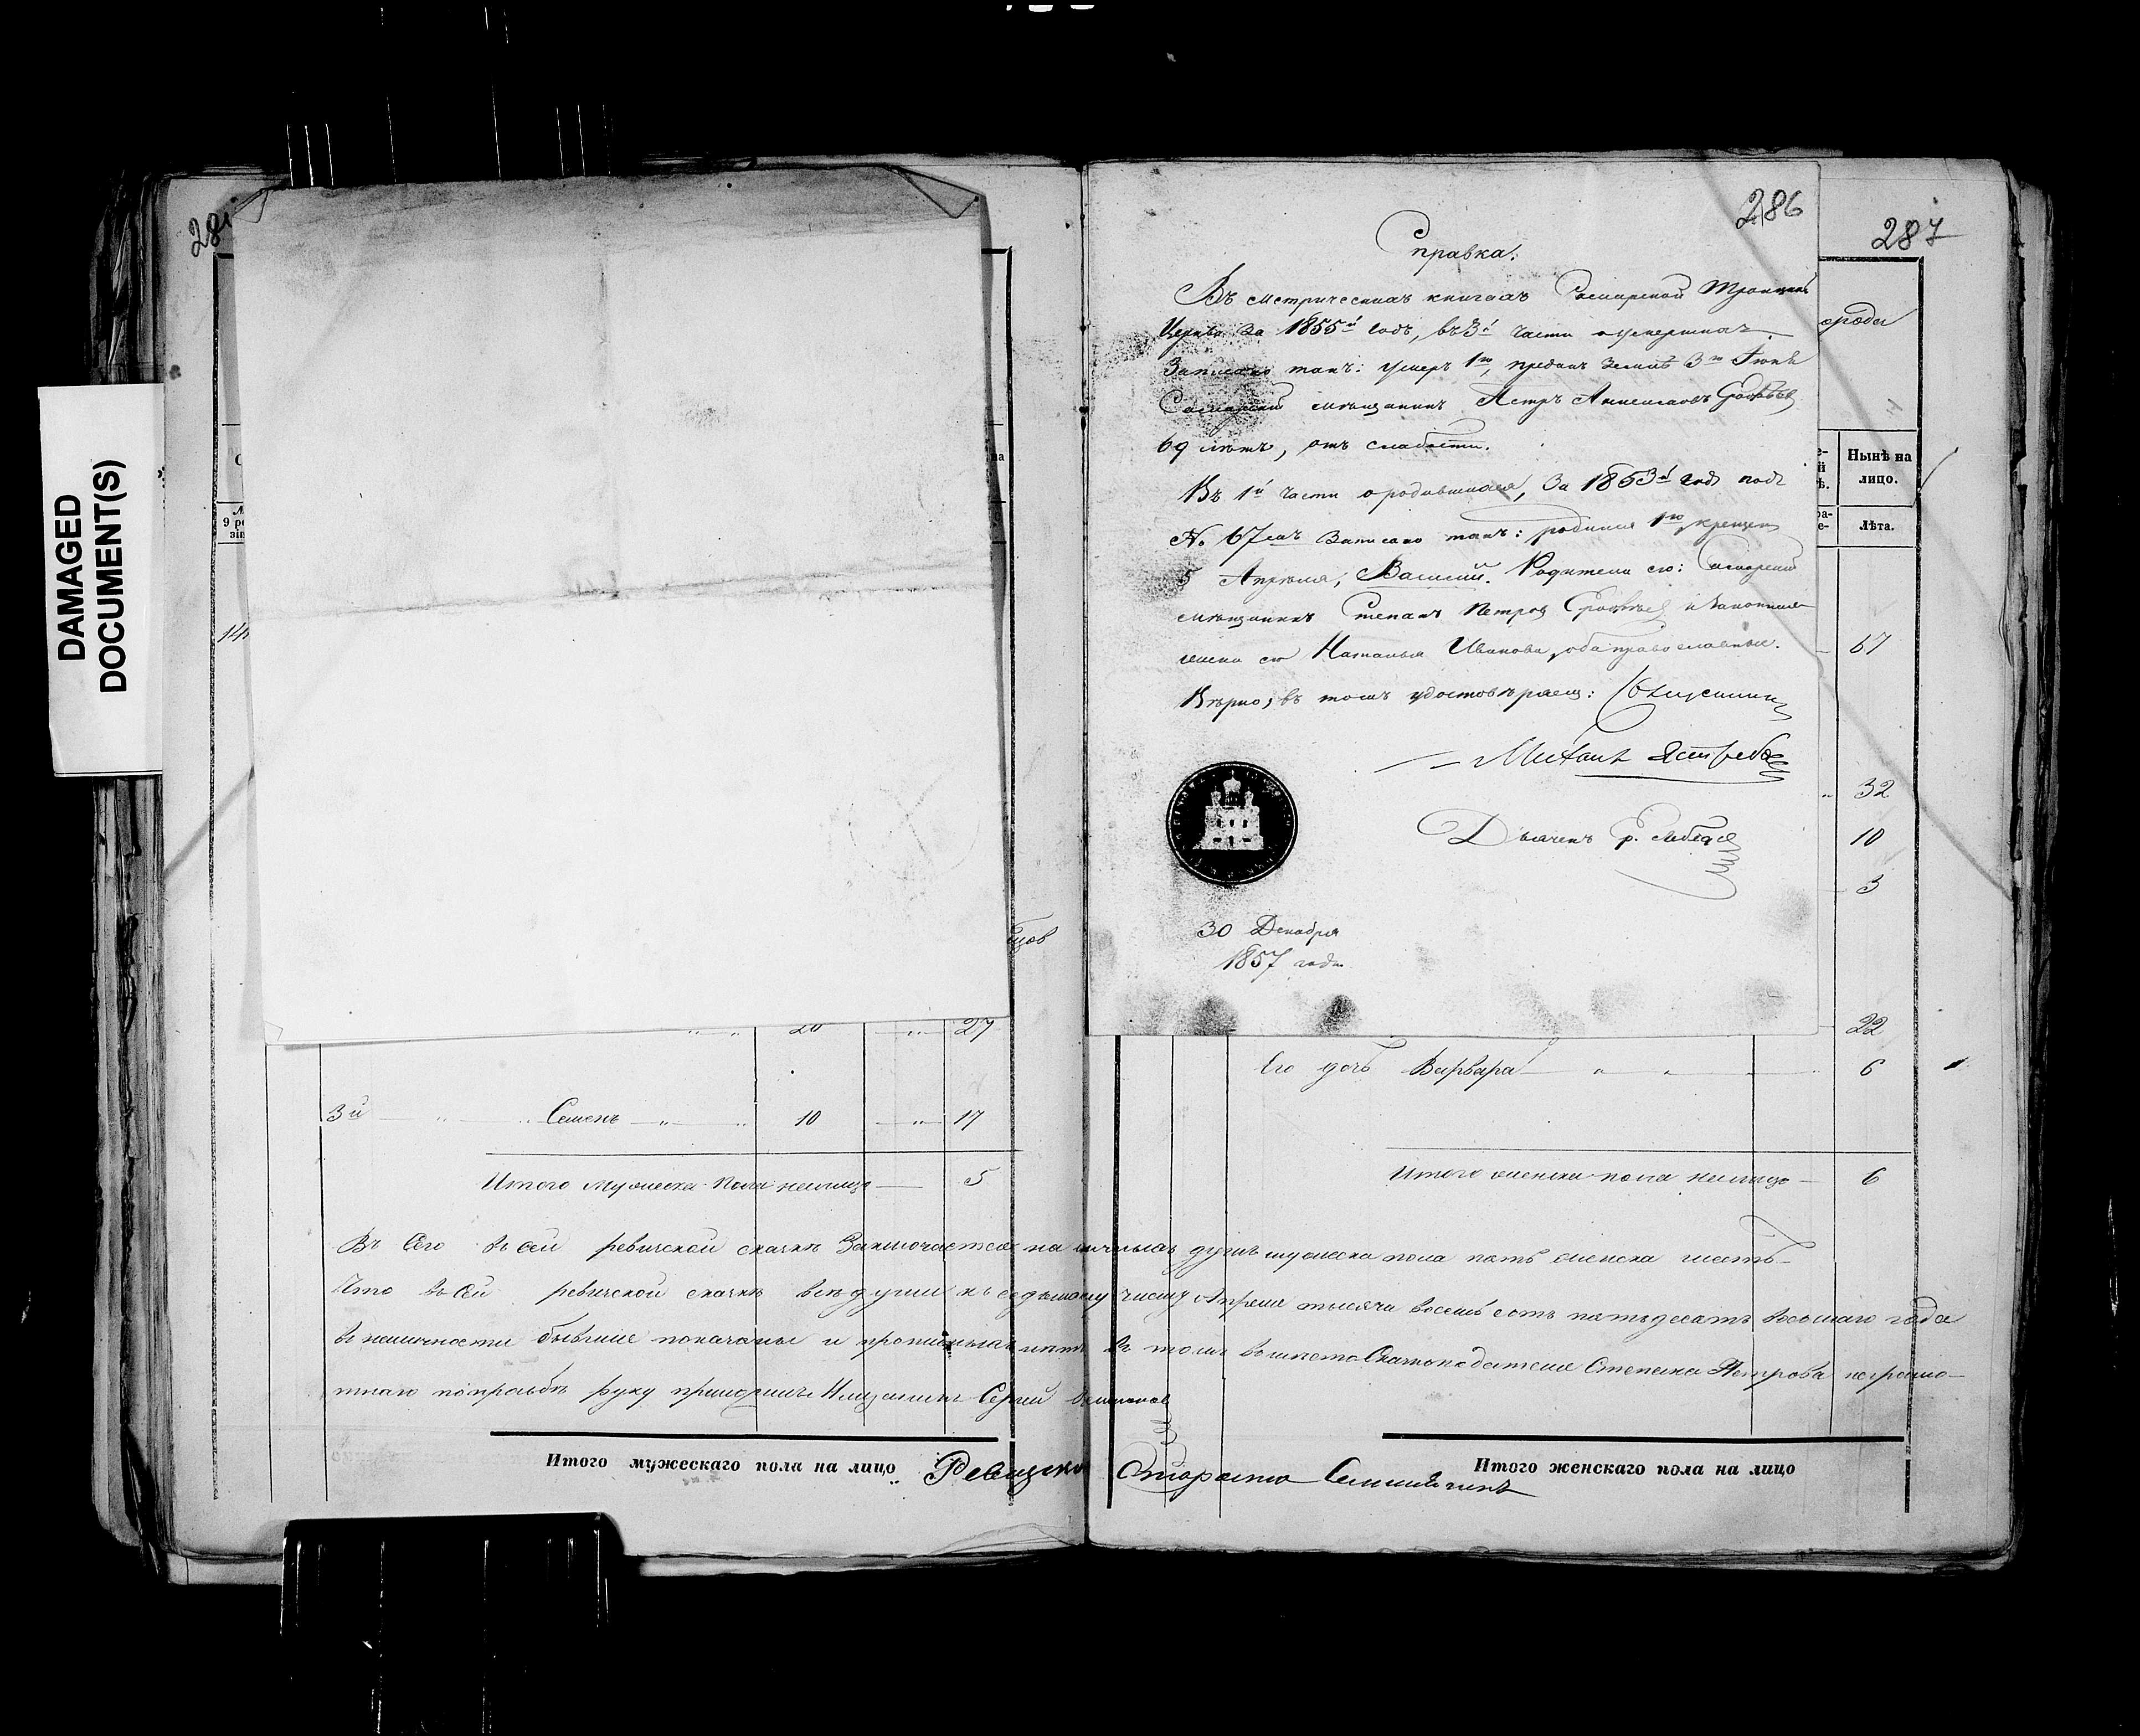 DAMAGED
DOCUMENT(S)
286
287
Справка.
Въ метрическихъ книгахъ Самарской Троицкой
Церкви за 1855й годъ, въ 3й части о умершихъ
Записано такъ: умеръ 1го, преданъ землѣ 3го Іюня
Самарскій мѣщанинъ Петръ
69 лѣтъ, отъ слабости.
Въ 1й части о родившихся, за 1853й годъ подъ
№ 67мъ записано такъ: родился 1го, крещенъ
5 Апрѣля, Василій. Родители его: Самарскій
мѣщанинъ Степанъ Петровъ и законная
жена его Наталья Иванова, оба православные.
Вѣрно, въ томъ удостовѣряемъ:
Михаилъ
Дьячекъ
30 Декабря
1857 года
Нынѣ на
лицо.
Лѣта.
67
32
10
3
22
27
Его дочь Варвара 6
3й Семенъ 10 17
Итого мужеска пола налицо 5
Итого женска пола налицо 6
въ сей ревизской сказкѣ заключается наличныхъ душъ мужеска пола пять женска шесть
Что въ сей ревизской сказкѣ всѣ души къ седьмому числу Апреля тысяча восемь сотъ пятьдесятъ восьмаго года
въ наличности бывшие показаны и нѣтъ въ томъ вместо Сказкоподателя Степана Петрова неграмо-
тнаго по прозьбѣ руку приложилъ Мещанинъ Сергей
Итого мужескаго пола на лицо
Ревизской Староста
Итого женскаго пола на лицо